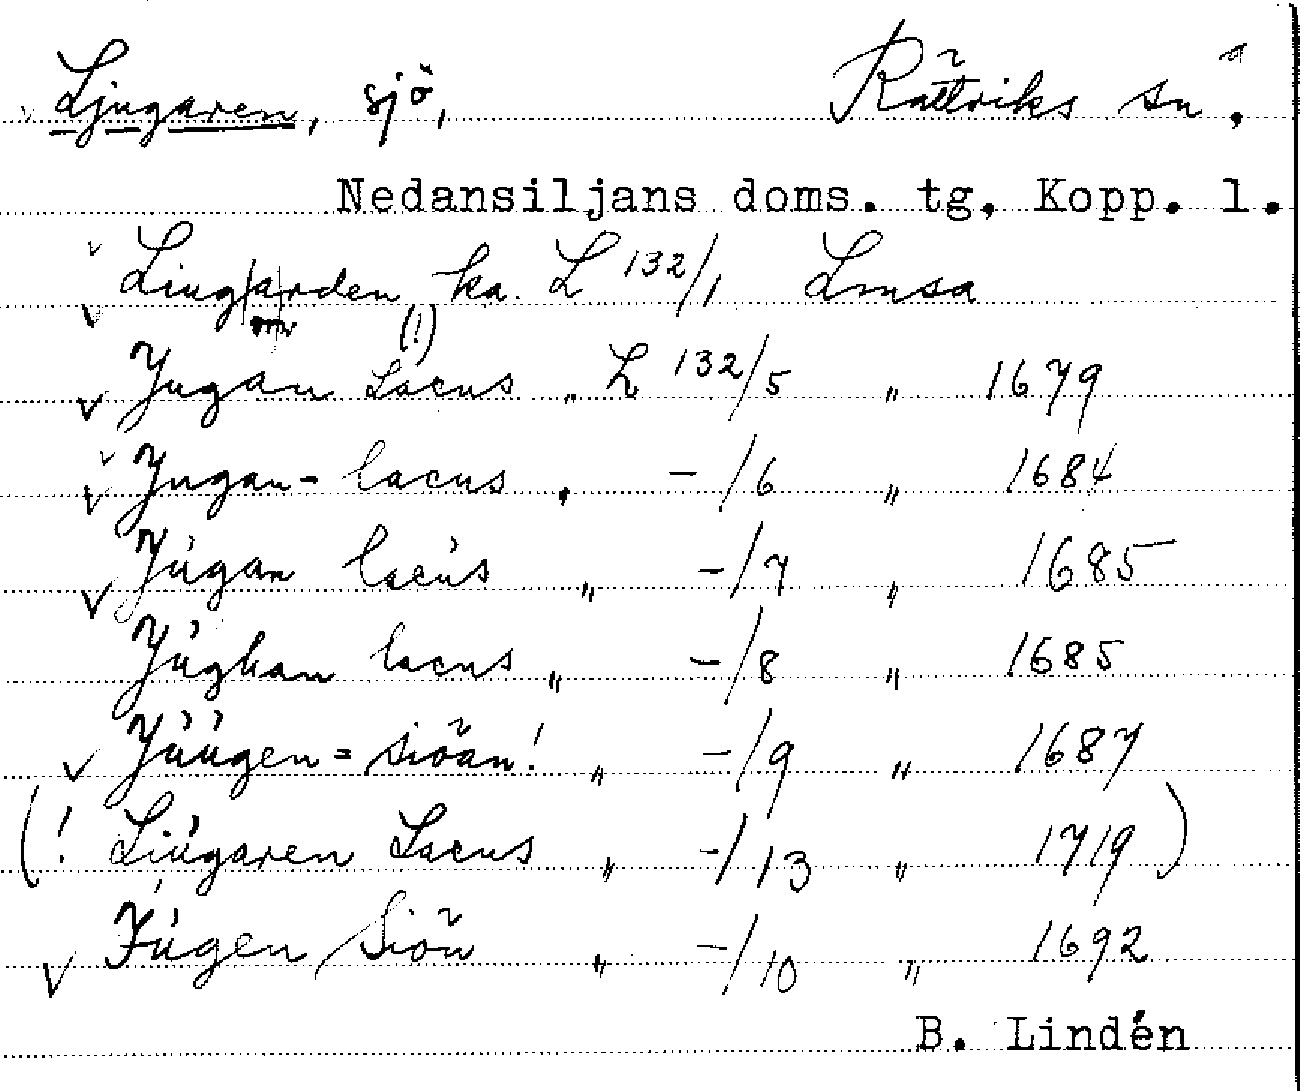 Ljugaren, sjö, Rättviks sn.
Nedansiljans doms. tg, Kopp. l.
Liugarden ka. L 132/1 Lmsa
(!)
Jugan Lacus „ L 132/5 „ 1679
Jugan- lacus „ -/6 „ 1684
Júgan lacús „ -/7 „ 1685
Júghan lacus „ -/8 „ 1685
Júúgen= siöän! „ -/9 „ 1687
(! Liúgaren Lacus „ -/13 „ 1719)
Júgen Siön „ -/10 „ 1692
B. Lindén